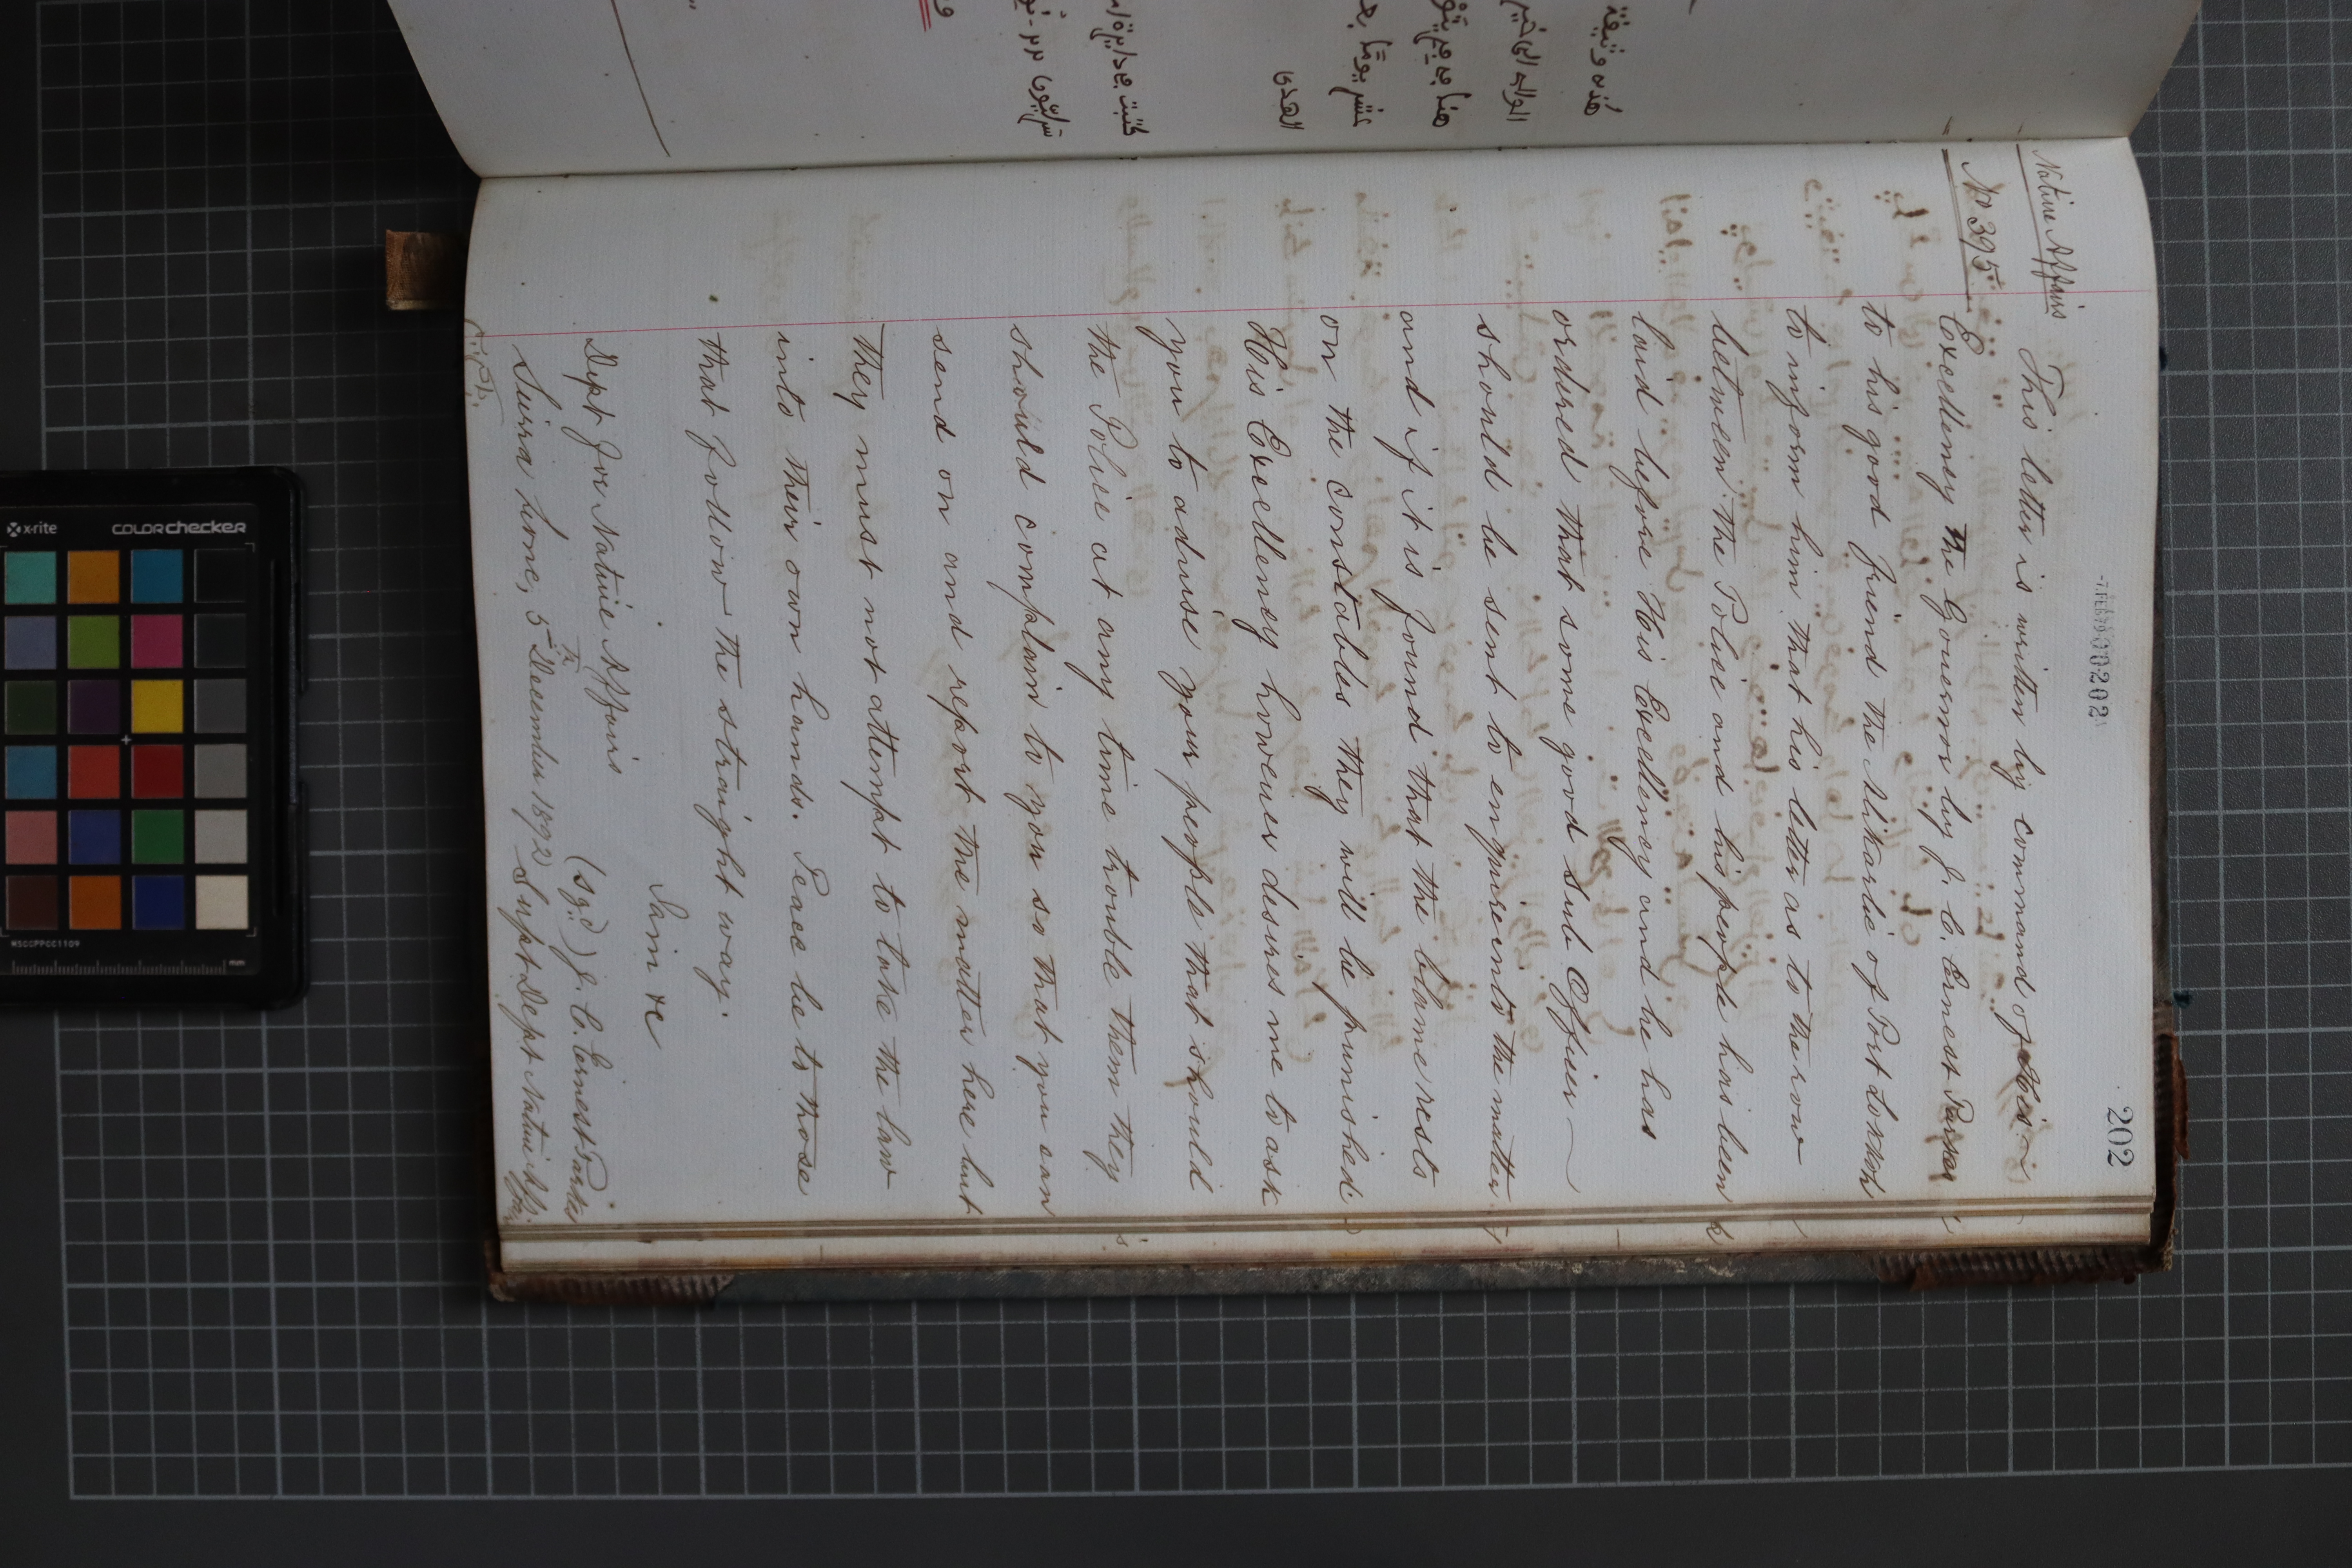 202
00202
Native Affairs
No 395
This letter is written by command of His
Excellency the Governor by J. C. Ernest Parkes
to his good friend the Alikarlie of Port Lokkoh
to inform him that his letter as to the row
between the Police and his people has been
laid before His Excellency and he has
ordered that some good sub Officer
should be sent to enquire into the matter
and if it is found that the blame rests
on the constables they will be punished.
His Excellency however desires me to ask
you to advise your people that should
the Police at any time trouble them they
should complain to you so that you can
send on and report the matter here but
they must not attempt to take the law
into their own hands. Peace be to those
that follow the straight way.
I am &c
(sgd) J. C. Ernest Parkes
Dept for Native Affairs
Supt Dept Native Affrs
Sierra Leone, 5th December 1892
هذه وثيقة
العدى
x-rite
COLORchecker
MSCCPPCC1109
mm